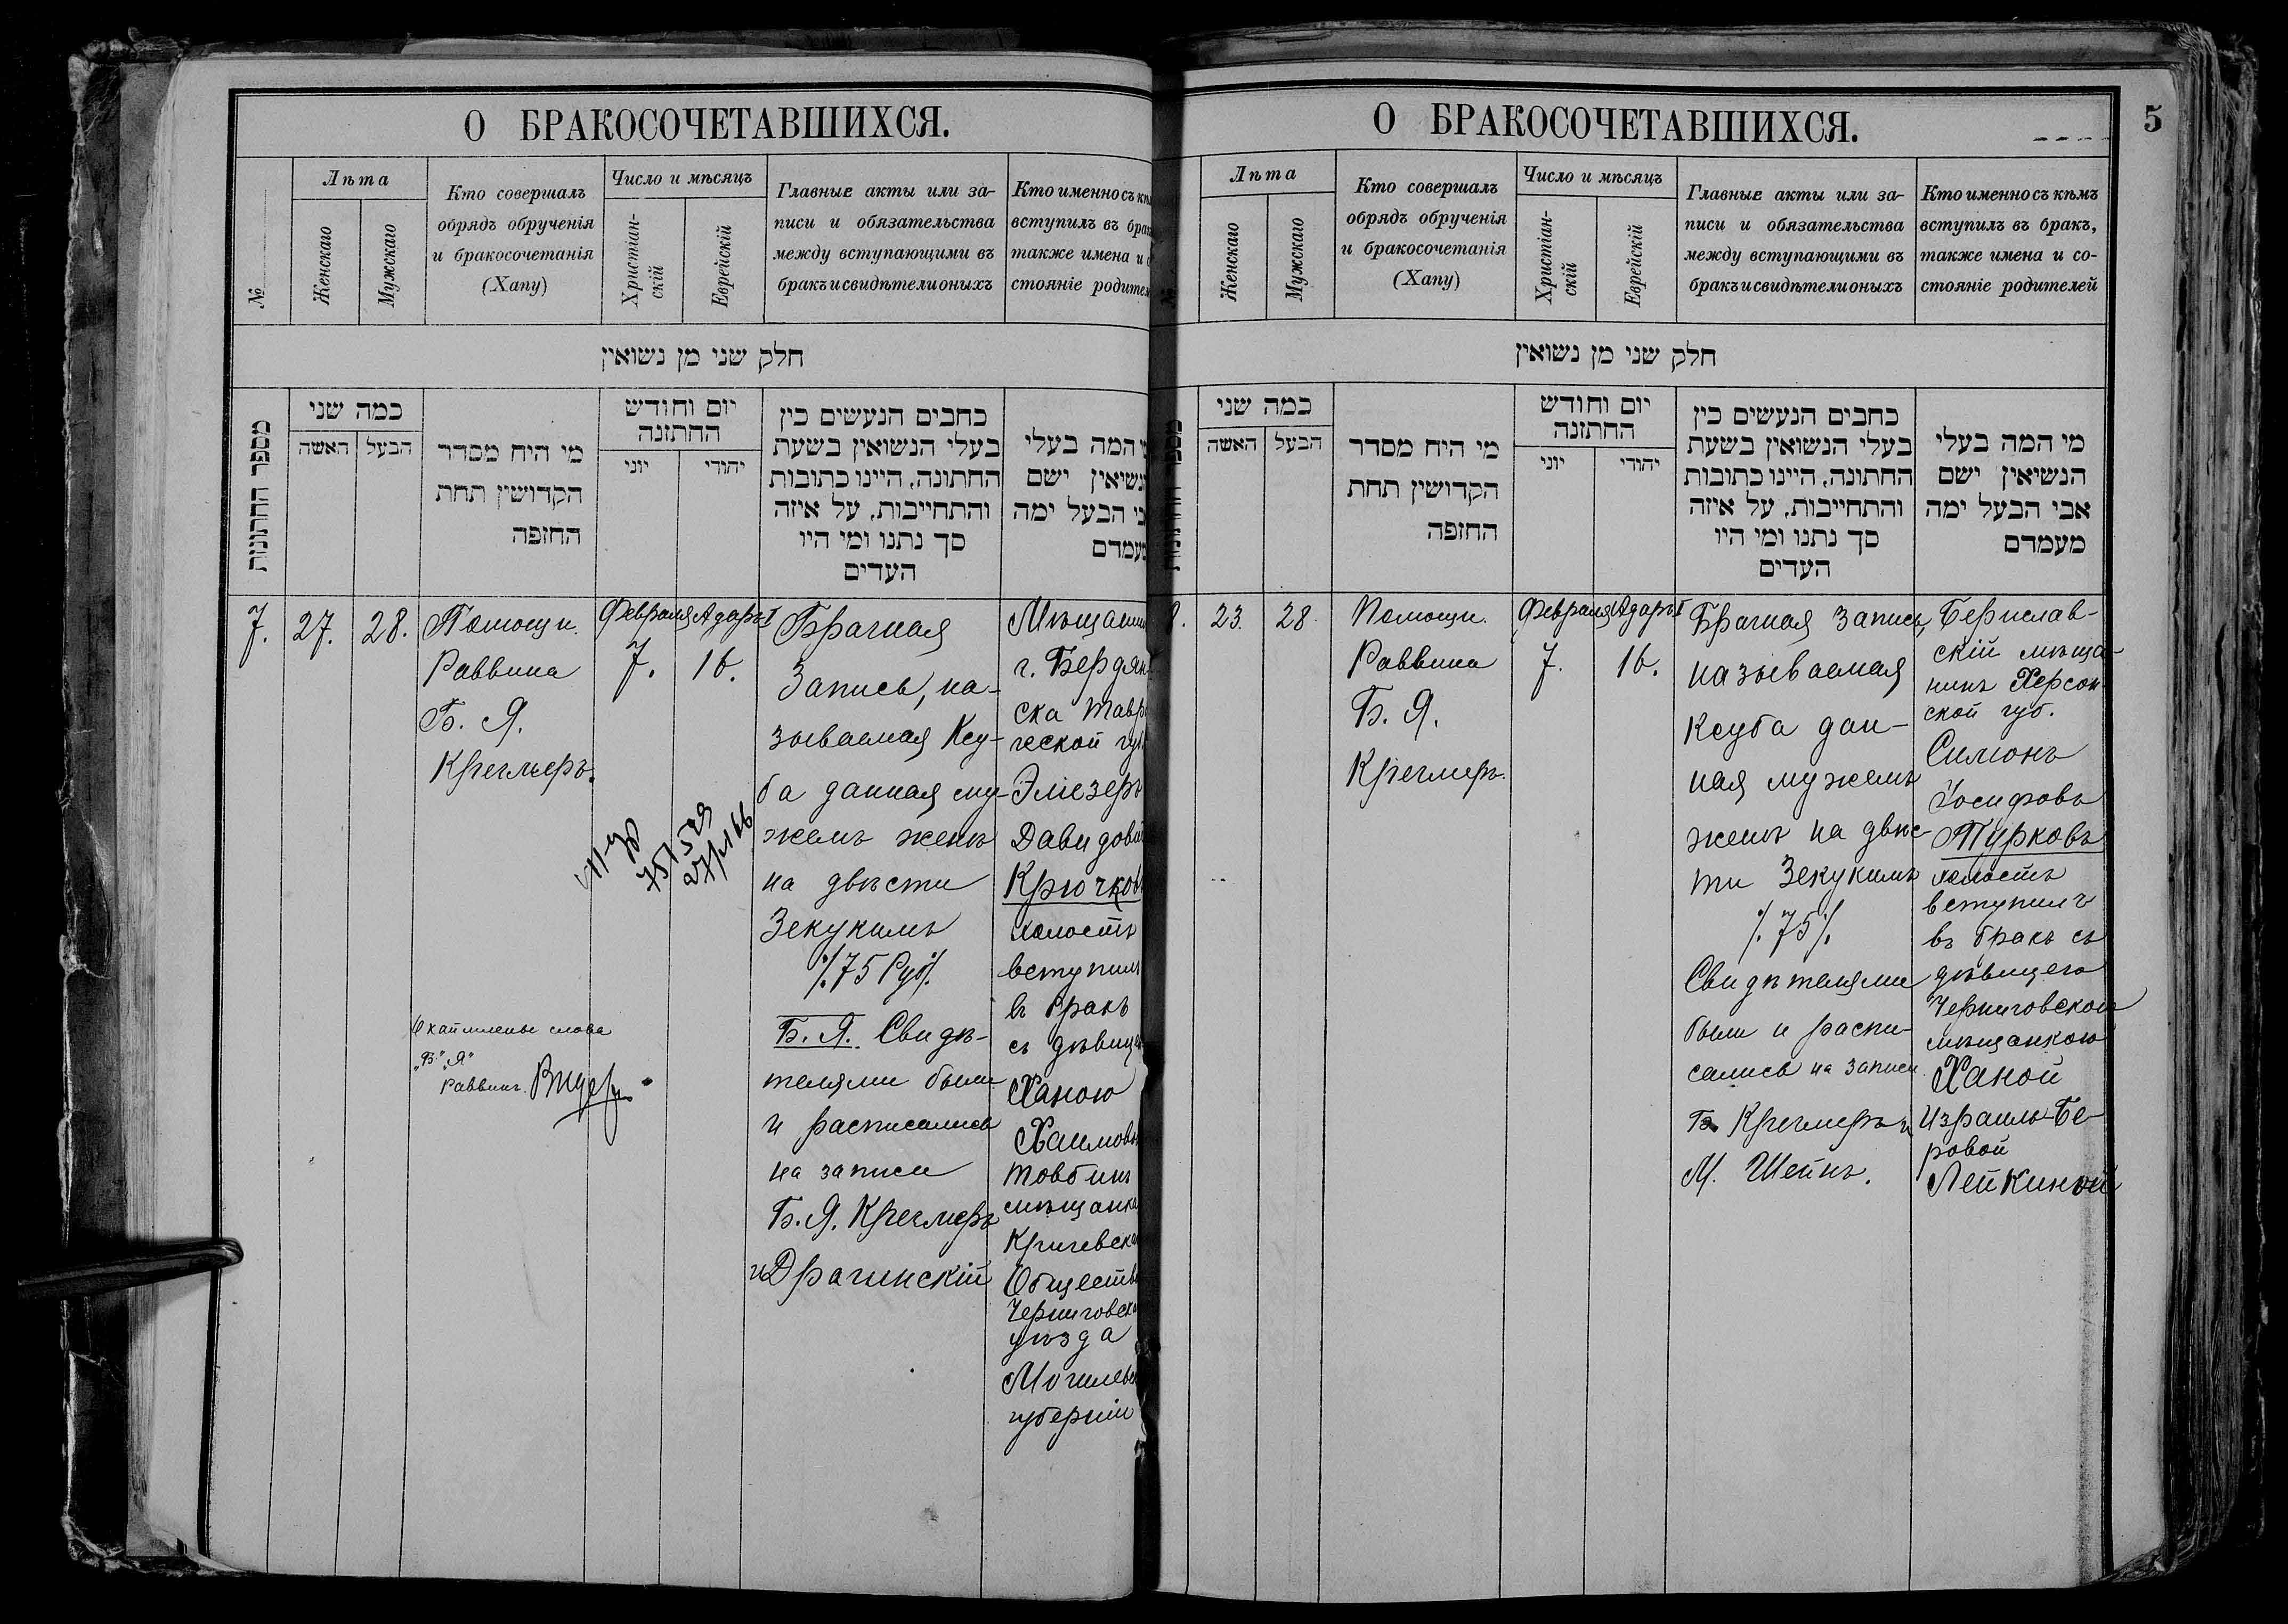 О БРАКОСОЧЕТАВШИХСЯ.
№
Лѣта
Женскаго
Мужскаго
Кто совершалъ
обрядъ обрученія
и бракосочетанія
(Хапу)
Число и мѣсяцъ
Христіан-
скій
Еврейскій
Главные акты или за-
писи и обязательства
между вступающими въ
бракъ и свидѣтели оныхъ
Кто именно съ
вступилъ въ
также имена и
стояніе
חלק שני מן נשואין
מספר החתונות
כמה שני
האשה
הבעל
מי היח מסדר
הקדושין תחת
החופה
יום וחודש
החתונה
יוני
יהודי
כחבים הנעשים כין
בעלי הנשואין בשעת
החתונה, היינו כתובות
והתחייבות, על איזה
סך נתנו ומי היו
העדים
המה בעלי
ישם
הבעל ימה
7.
27.
28.
Помощн.
Раввина
Б. Я.
Кречмеръ.
Февраля
7.
Адаръ I
16.
Брачная
Запись, на-
зываемая Ксу-
ба данная му-
жемъ женѣ
на двѣсти
Зекукимъ
/.75 Руб/.
Б. Я. Свидѣ-
телями были
и расписались
на записи
Б. Я. Кречмеръ
и Драгинскій
г. Бердян-
ска
ческой
Эліезеръ
Крючковъ
холостъ
вступилъ
въ бракъ
съ
Ханою
Товбинъ
уѣзда
губерніи
слова
„Б.“ „Я“
Раввинъ
О БРАКОСОЧЕТАВШИХСЯ.
5
Лѣта
Женскаго
Мужскаго
Кто совершалъ
обрядъ обрученія
и бракосочетанія
(Хапу)
Число и мѣсяцъ
Христіан-
скій
Еврейскій
Главные акты или за-
писи и обязательства
между вступающими въ
бракъ и свидѣтели оныхъ
Кто именно съ кѣмъ
вступилъ въ бракъ,
также имена и со-
стояніе родителей
חלק שני מן נשואין
כמה שני
האשה
הבעל
מי היח מסדר
הקדושין תחת
החופה
יום וחודש
החתונה
יוני
יהודי
כחבים הנעשים כין
בעלי הנשואין בשעת
החתונה, היינו כתובות
והתחייבות, על איזה
סך נתנו ומי היו
העדים
מי המה בעלי
הנשיאין ישם
אבי הבעל ימה
מעמדם
8.
23.
28.
Помощн.
Раввина
Б. Я.
Кречмеръ.
Февраля
7.
Адаръ I
16.
Брачная Запись,
называемая
Ксуба дан-
ная мужемъ
женѣ на двѣс-
ти Зекукимъ
/.75/.
Свидѣтелями
были и распи-
сались на записи
Б. Кречмеръ и
М. Шейнъ.
Берислав-
скій мѣща-
нинъ Херсон-
ской губ.
Симонъ
Іосифовъ
Турковъ
холостъ
вступилъ
въ бракъ съ
дѣвицею
Черниговскою
мѣщанкою
Ханой
Израиль-Бе-
ровой
Лейкиной